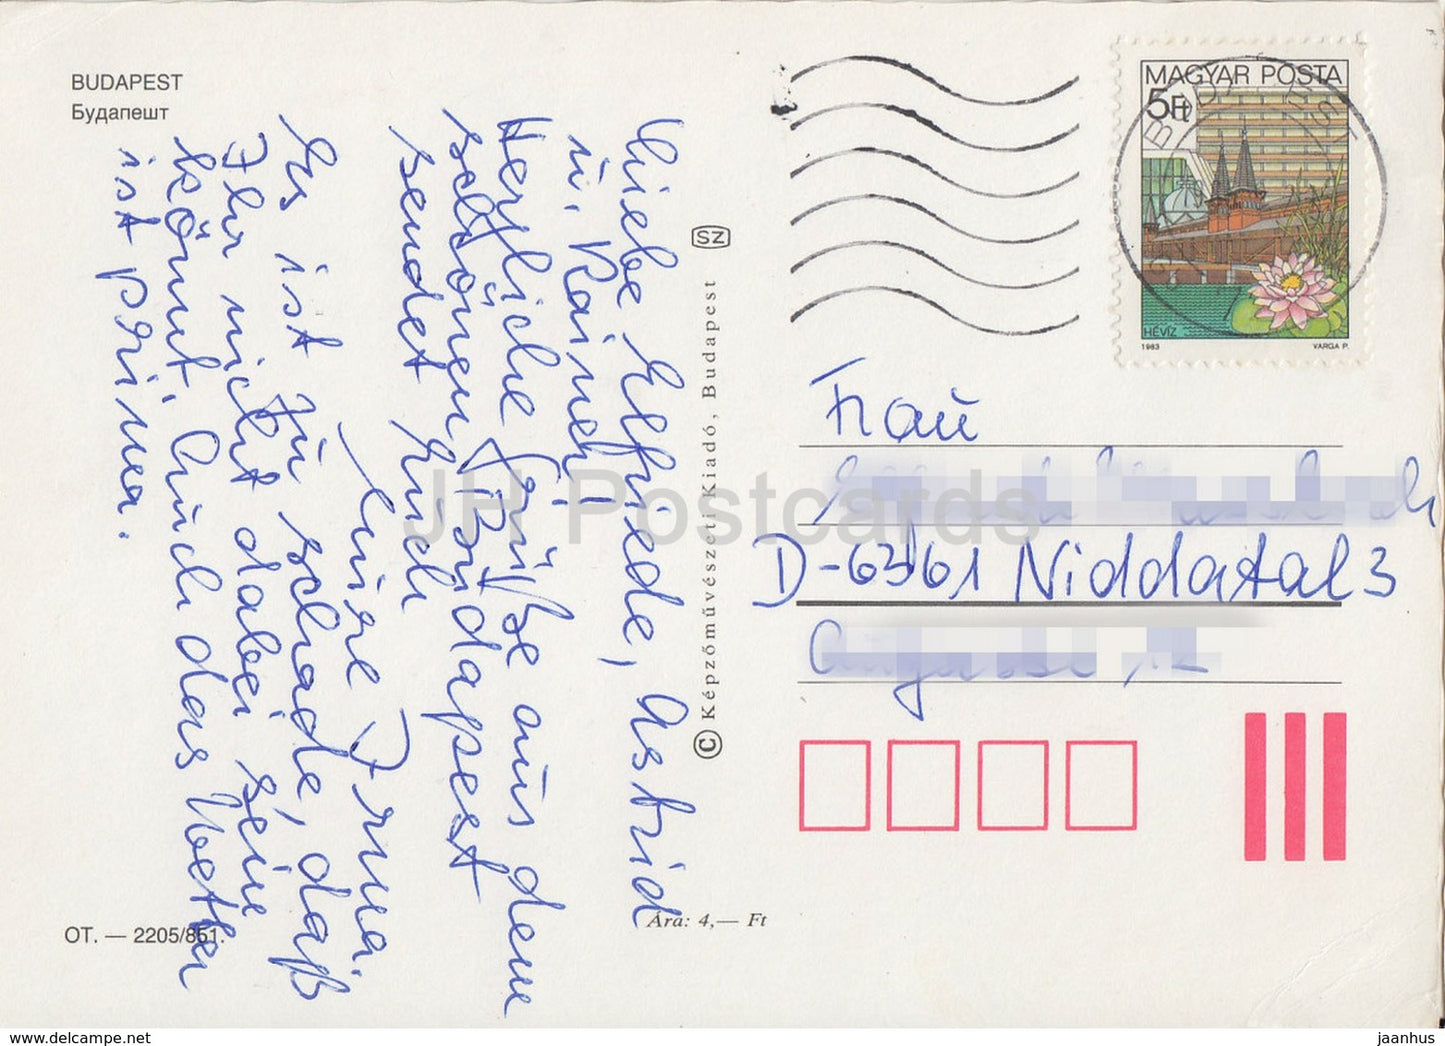 BUDAPEST
Будапешт
Liebe Elfriede, Astrid
u. Rainer!
Herzliche Grüße aus dem
schönen Budapest
sendet Euch
Eure Irma.
Es ist zu schade, daß
Ihr nicht dabei sein
könnt. Auch das Wetter
ist prima.
OT. — 2205/851.
SZ
© Képzőművészeti Kiadó, Budapest
Ára: 4,— Ft
MAGYAR POSTA
5Ft
HÉVÍZ
1983 VARGA P.
Frau
D-6361 Niddatal 3
JH Postcards
https://www.delcampe.net
jaanhus